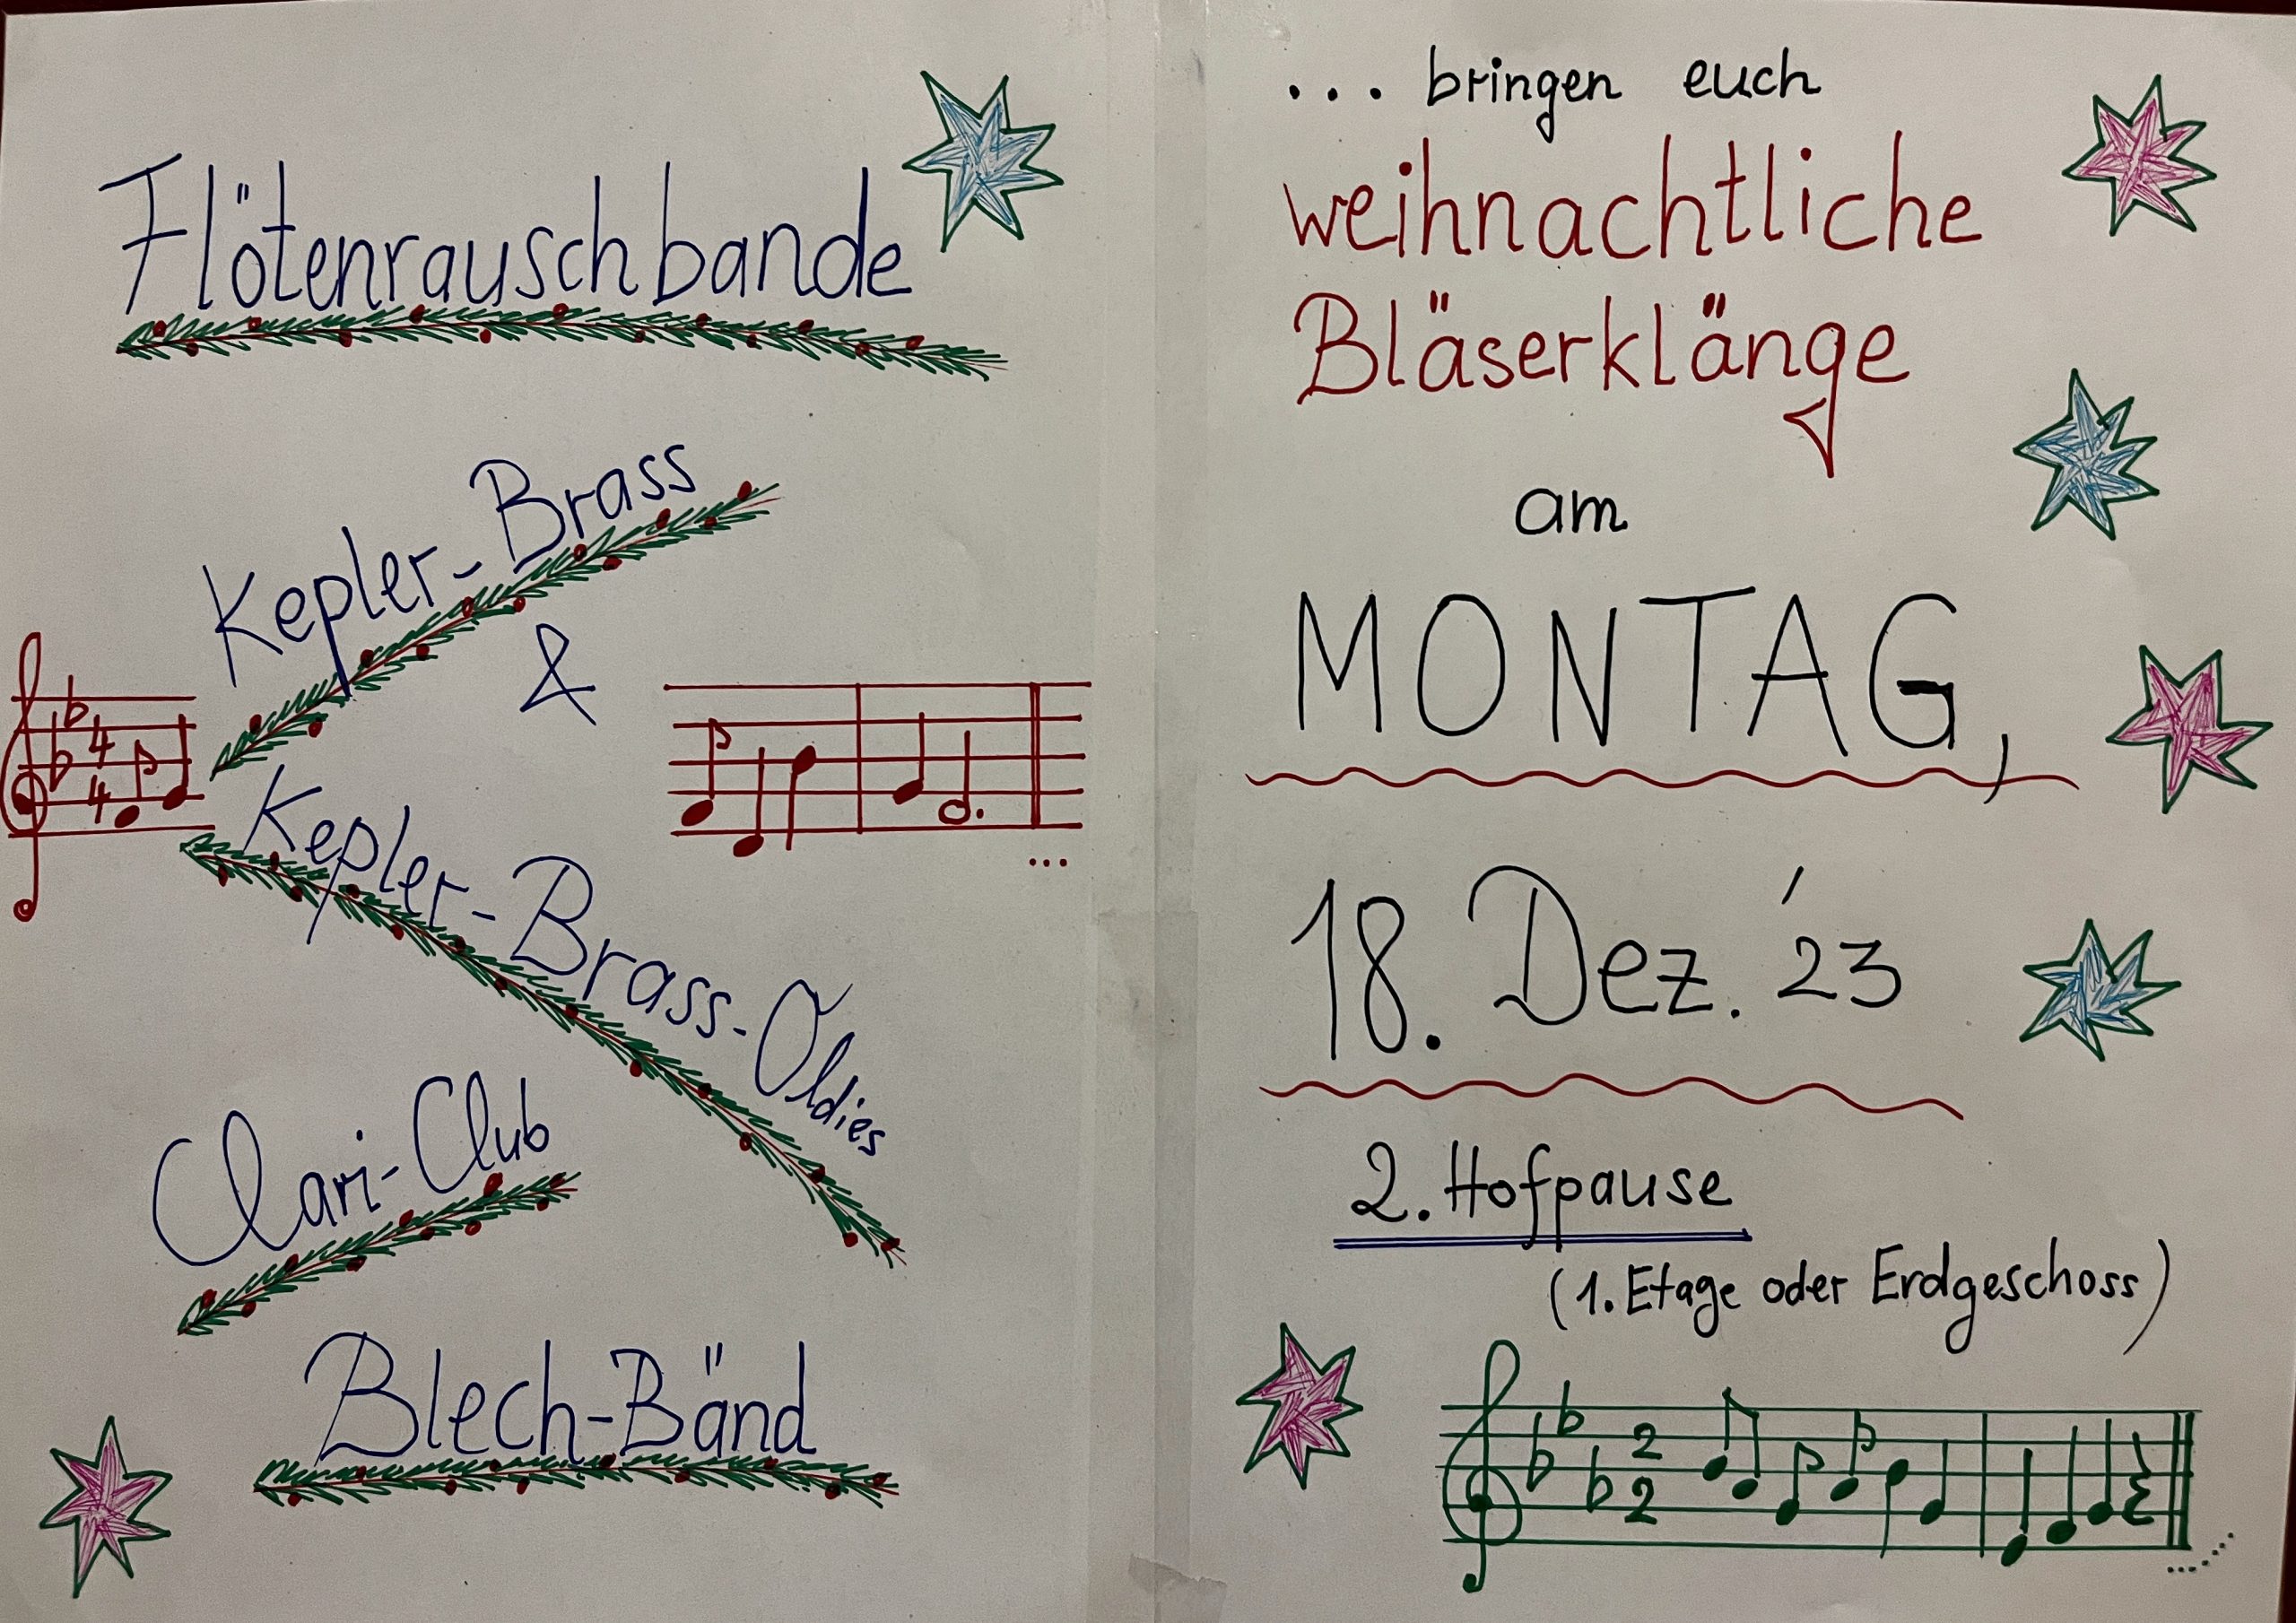 Flötenrauschbande
Kepler-Brass
&
Kepler-Brass-Oldies
Clari-Club
Blech-Bänd
... bringen euch
weihnachtliche
Bläserklänge
am
MONTAG,
18. Dez. '23
2. Hofpause
(1. Etage oder Erdgeschoss)